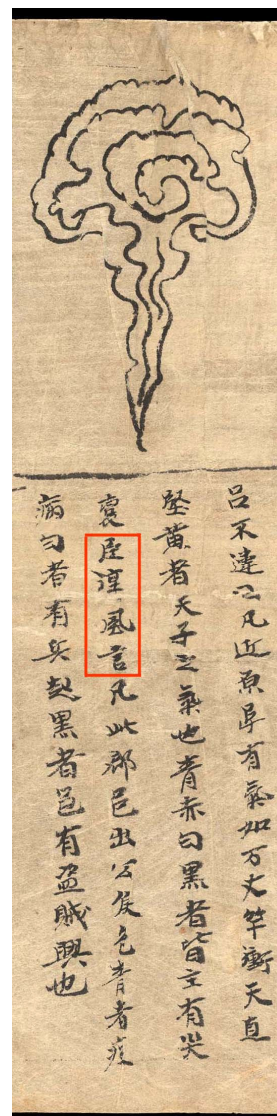 呂不違云凡近原阜有氣如万丈竿衝天直
竪黄者天子之氣也青赤白黑者皆主有哭
喪臣淳風言凡此郡邑出公侯色青者疫
病白者有兵起黑者邑有盗賊興也